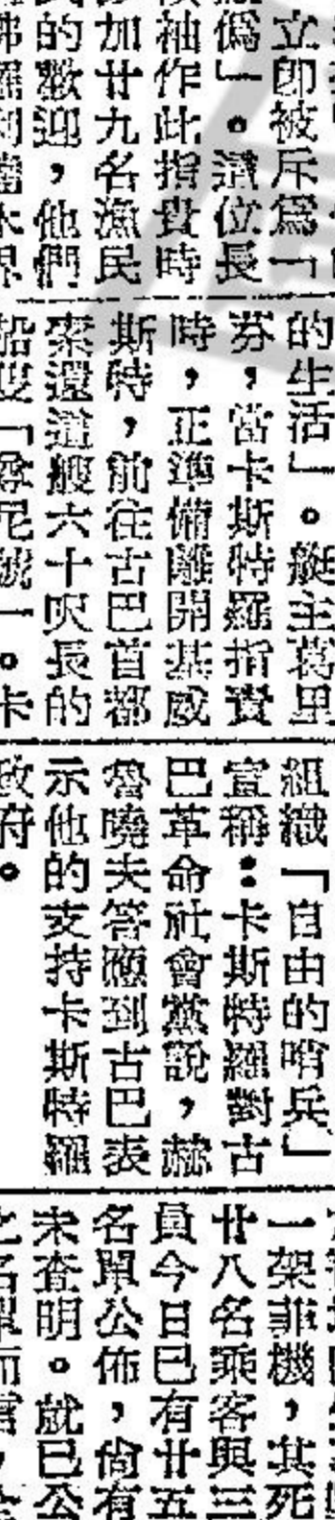 立即被斥爲「
僞」。這位長
袖作此指責時
加廿九名漁民
的歡迎，他們
的生活」。艇主葛里
芬，當卡斯特羅指責
時，正準備離開基威
斯特，前往古巴首都
索還這艘六十呎長的
船隻「尋尼號」。卡
組織「自由的哨兵」
宣稱：卡斯特羅對古
巴革命社會黨說，赫
魯曉夫答應到古巴表
示他的支持卡斯特羅
政府。
一架菲機，其死
廿八名乘客與三
員今日已有廿五
名單公佈，尙有
未查明。就已公